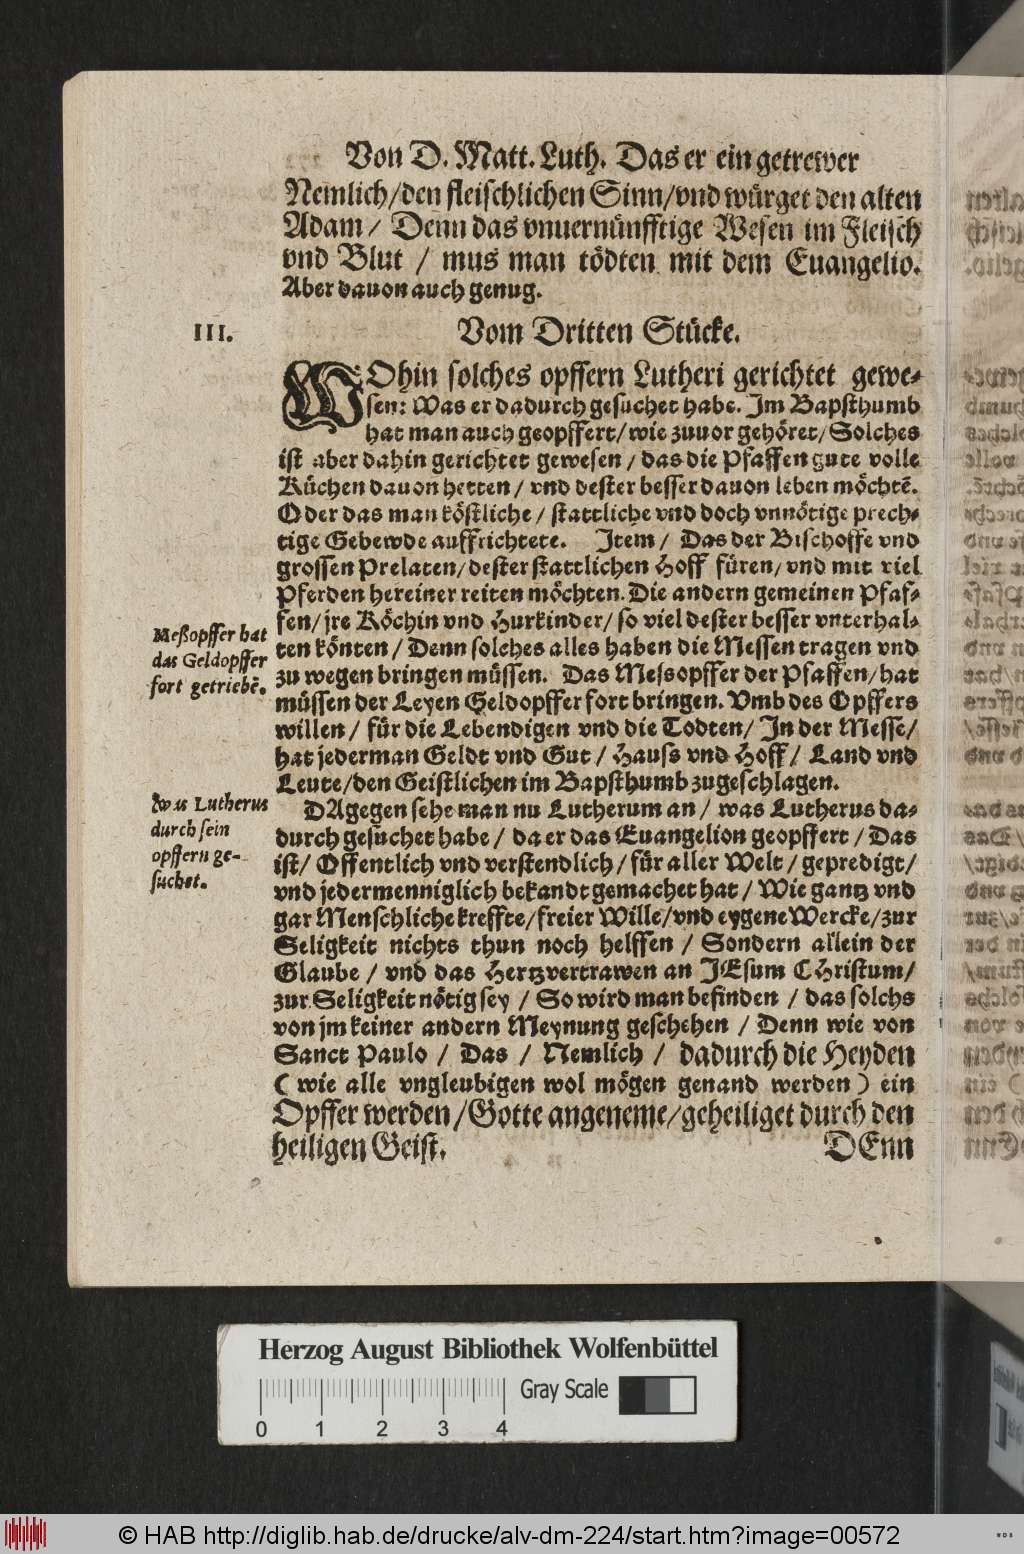 Von D. Matt. Luth. Das er ein getrewer
Nemlich/den fleischlichen Sinn/vnd würget den alten
Adam / Denn das vnuernünfftige Wesen im Fleisch
vnd Blut / mus man tödten mit dem Euangelio.
Aber dauon auch genug.
III.
Vom Dritten Stücke.
WOhin solches opffern Lutheri gerichtet gewe-
sen: Was er dadurch gesuchet habe. Im Bapsthumb
hat man auch geopffert/wie zuuor gehöret/Solches
ist aber dahin gerichtet gewesen / das die Pfaffen gute volle
Küchen dauon hetten / vnd dester besser dauon leben möchtẽ.
Oder das man köstliche / stattliche vnd doch vnnötige prech-
tige Gebewde auffrichtete. Item / Das der Bischoffe vnd
grossen Prelaten/dester stattlichen Hoff füren/vnd mit viel
Pferden hereiner reiten möchten. Die andern gemeinen Pfaf-
fen/jre Köchin vnd Hurkinder/so viel dester besser vnterhal-
ten könten / Denn solches alles haben die Messen tragen vnd
zu wegen bringen müssen. Das Mesopffer der Pfaffen/hat
müssen der Leyen Geldopffer fort bringen. Vmb des Opffers
willen / für die Lebendigen vnd die Todten/In der Messe/
hat jederman Geldt vnd Gut / Hauss vnd Hoff / Land vnd
Leute/den Geistlichen im Bapsthumb zugeschlagen.
Meßopffer hat
das Geldopffer
fort getriebẽ.
DAgegen sehe man nu Lutherum an / was Lutherus da-
durch gesuchet habe / da er das Euangelion geopffert / Das
ist/ Offentlich vnd verstendlich/für aller Welt/gepredigt/
vnd jedermenniglich bekandt gemachet hat / Wie gantz vnd
gar Menschliche kreffte/freier Wille/vnd eygene Wercke/zur
Seligkeit nichts thun noch helffen / Sondern allein der
Glaube / vnd das Hertzvertrawen an JEsum CHristum/
zur Seligkeit nötig sey / So wird man befinden / das solchs
von jm keiner andern Meynung geschehen / Denn wie von
Sanct Paulo / Das / Nemlich / dadurch die Heyden
( wie alle vngleubigen wol mögen genand werden ) ein
Opffer werden/Gotte angeneme/geheiliget durch den
heiligen Geist.
DEnn
Was Lutherus
durch sein
opffern ge-
suchet.
Herzog August Bibliothek Wolfenbüttel
Gray Scale
0 1 2 3 4
© HAB http://diglib.hab.de/drucke/alv-dm-224/start.htm?image=00572